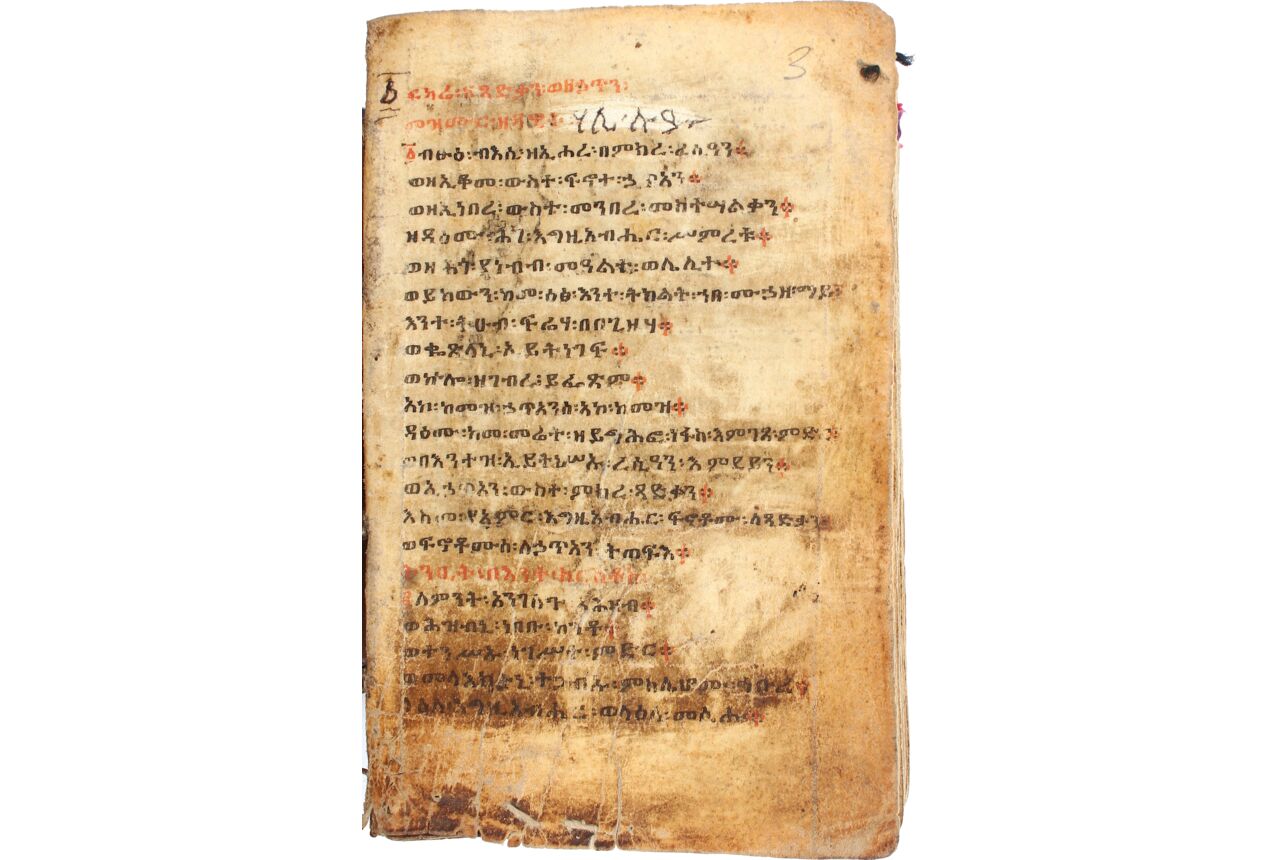 3
ፍካሬ፡ ዘጻድቃን፡ ወዘኃጥን፡
መዝሙር፡ ዘዳዊት፡ ሃሌ ሉያ
፩ብፁዕ፡ ብእሲ፡ ዘኢሖረ፡ በምክረ፡ ረሲዓን።
ወዘኢቆመ፡ ውስተ፡ ፍኖተ፡ ኃጥኣን።
ወዘኢነበረ፡ ውስተ፡ መንበረ፡ መስተሣልቃን።
ዘዳዕሙ፡ ሕገ፡ እግዚአብሔር፡ ሥምረቱ።
ወዘ ሕጎ፡ ያነብብ፡ መዓልተ፡ ወሌሊተ።
ወይከውን፡ ከመ፡ ዕፅ፡ እንተ፡ ትክልት፡ ኀበ፡ ሙኃዘ፡ ማይ።
እንተ፡ ትሁብ፡ ፍሬሃ፡ በበጊዜሃ።
ወቈጽላኒ፡ ኢይትነገፍ።
ወኵሎ፡ ዘገብረ፡ ይፌጽም።
አኮ፡ ከመዝ፡ ኃጥኣንሰ፡ አኮ፡ ከመዝ።
ዳዕሙ፡ ከመ፡ መሬት፡ ዘይግሕፎ፡ ነፋስ፡ እምገጸ፡ ምድር።
ወበእንተዝ፡ ኢይትነሥኡ፡ ረሲዓን፡ እምደይን።
ወኢኃጥኣን፡ ውስተ፡ ምክረ፡ ጻድቃን።
እስመ፡ የአምር፡ እግዚአብሔር፡ ፍኖቶሙ፡ ለጻድቃን።
ወፍኖቶሙሰ፡ ለኃጥኣን ትጠፍእ።
ትንቢት፡ በእንተ፡ ክርስቶስ፡
፪ለምንት፡ አንገለጉ አሕዛብ።
ወሕዝብኒ፡ ነበቡ፡ ከንቶ።
ወተንሥኡ፡ ነገሥተ፡ ምድር።
ወመላእክትኒ፡ ተጋብኡ፡ ምስሌሆሙ፡ ኅቡረ።
ላዕለ፡ እግዚአብሔር፡ ወላዕለ፡ መሲሑ።